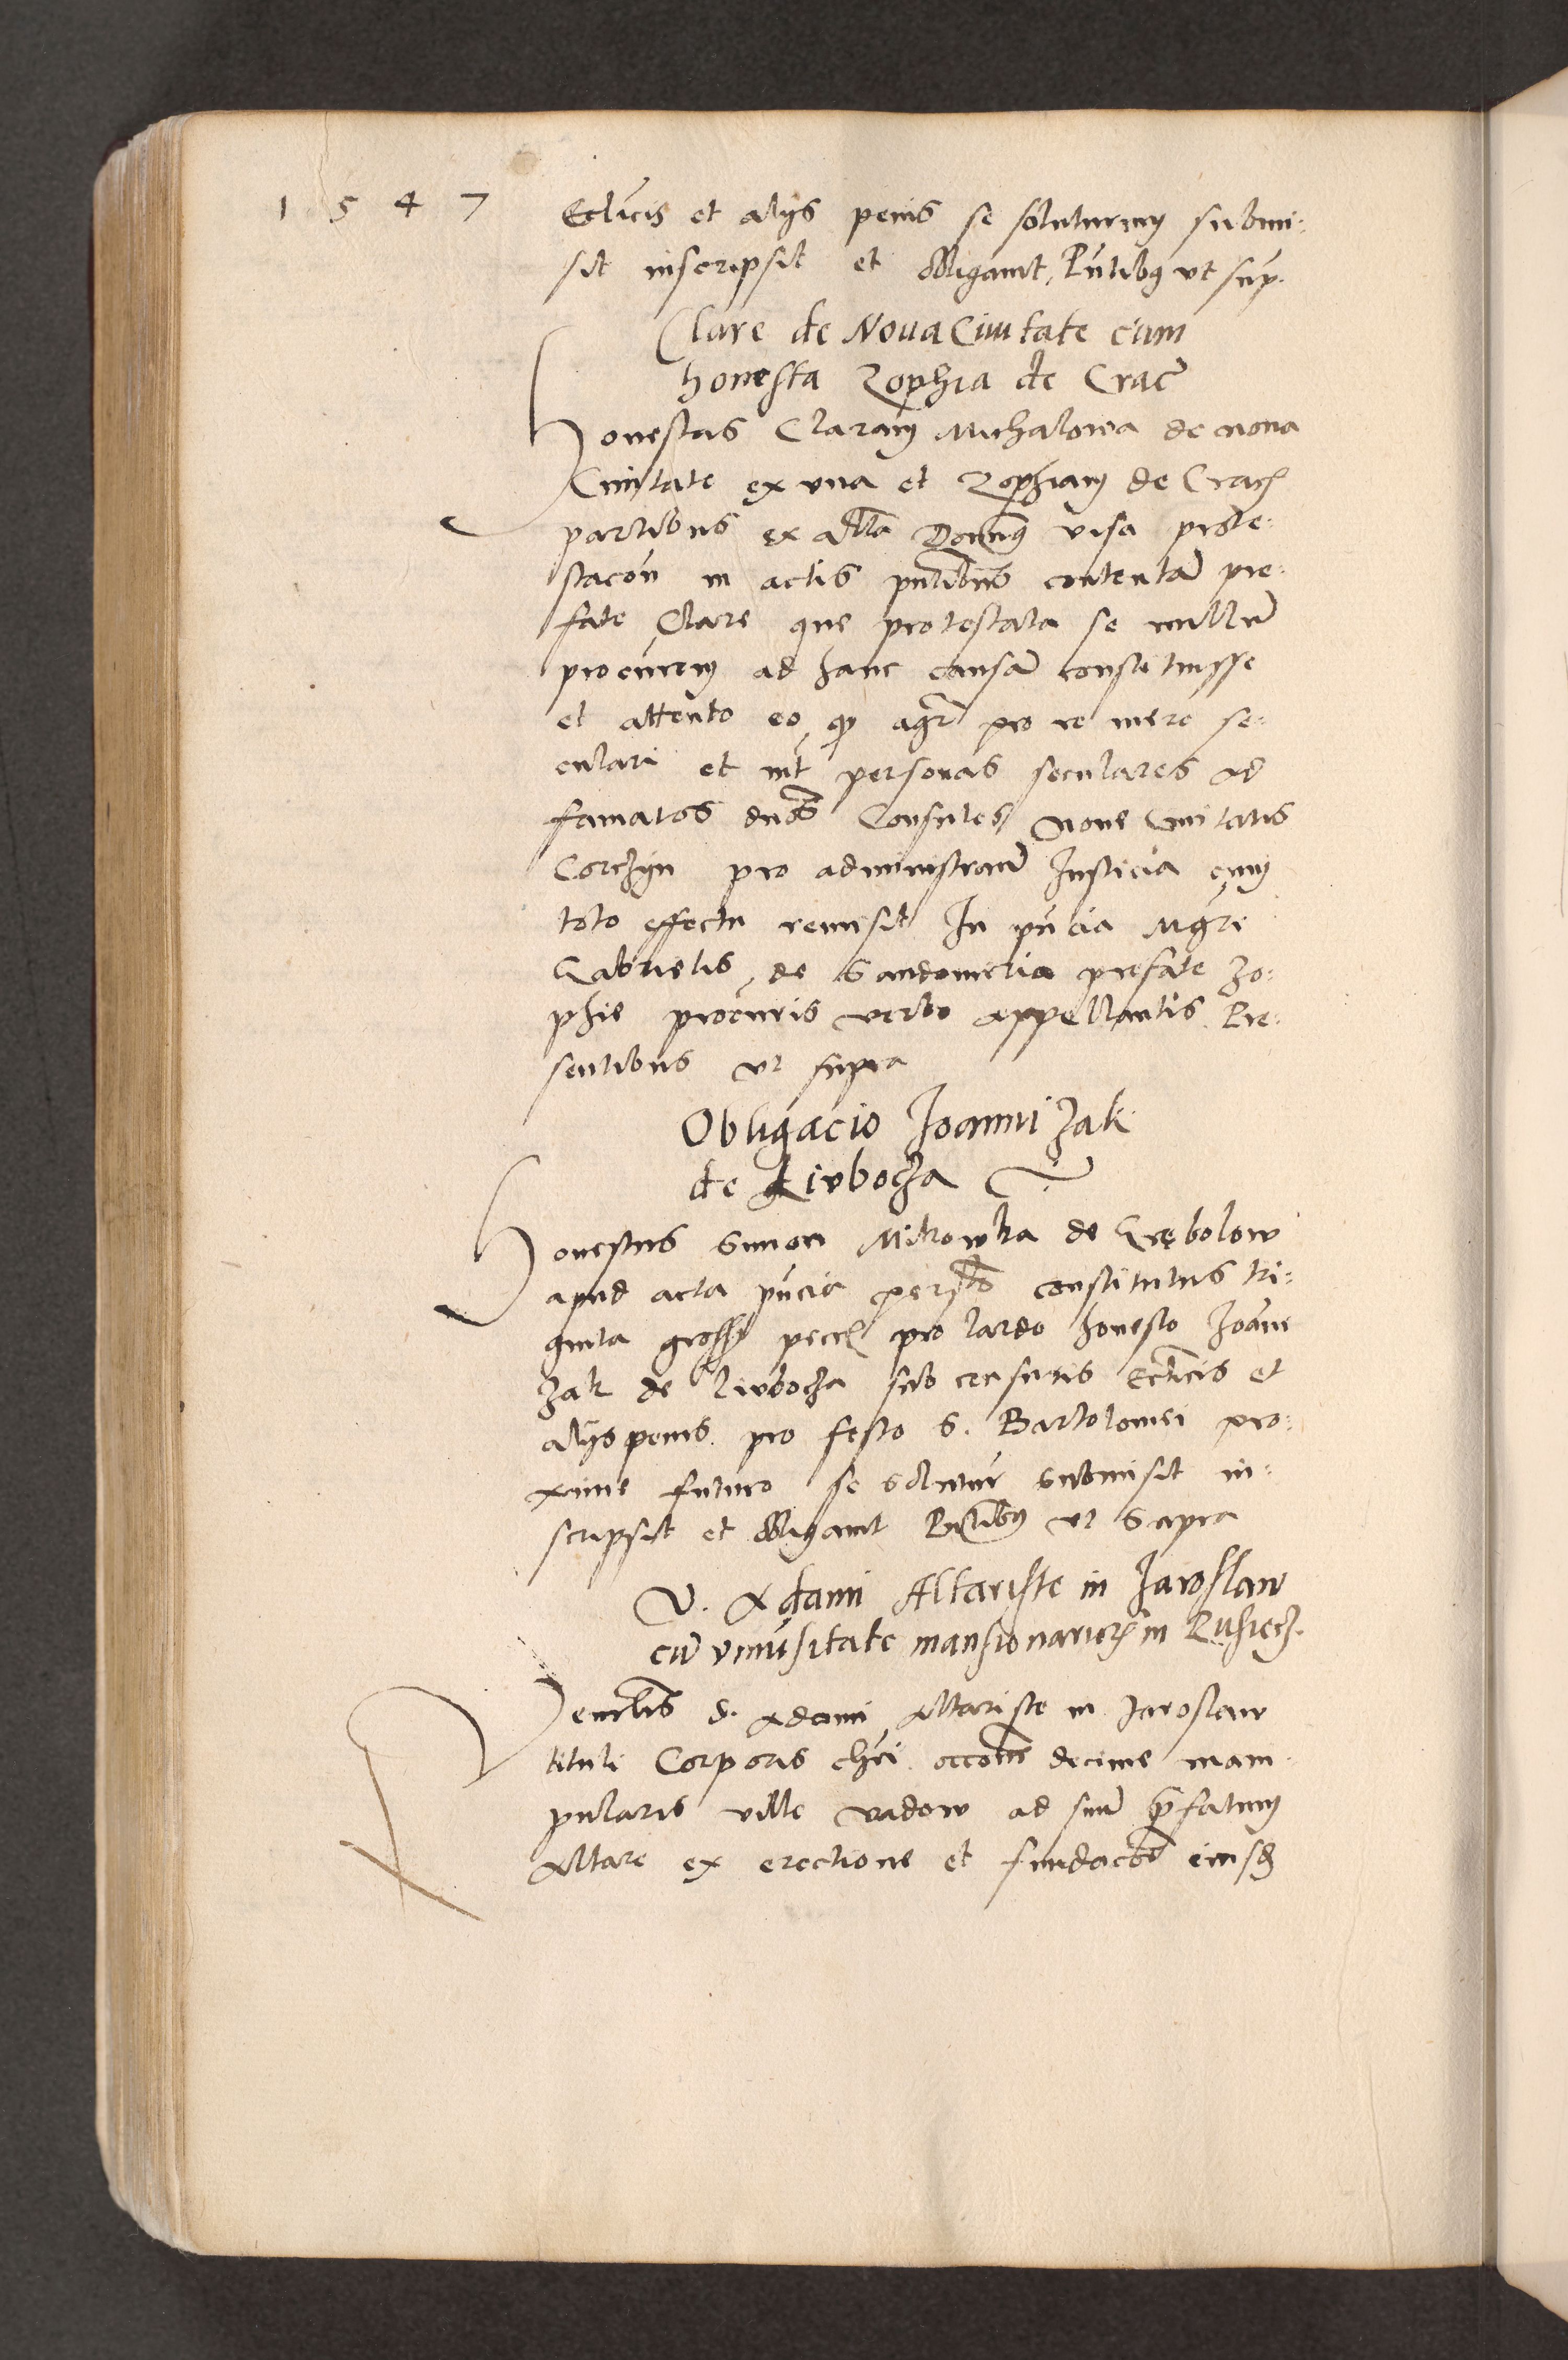 1 5 4 7
Eclicis et alijs penis se soluturum submi:
sit inscripsit et obligavit, Pntibus vt sup.
Clare de Noua Ciuitate cum
honesta Zophia de Crac
Honestas Claram Michalowa de noua
Ciuitate ex vna et Zophiam de Crac
partibus ex altera Dominus visa prote:
stacon in actis pntibus contenta pre:
fate Clare que protestata se nullum
procurem ad hanc causam constituisse
et attento eo, q agr pro re mere se:
culari et int personas seculares ad
famatos dnos Consules Noue Ciuitatis
Corczyn pro administranda Justicia cum
toto effectu remisit In pncia Mgri
Gabrielis de Sandomiria prefate Zo:
phie procuris verbo appellantis. Pre:
sentibus vt supra
Obligacio Joanni Zak
de Livbocza
Honestus Simon Mikowka de Grębolow
apud acta pncia personaliter constitutus tri:
ginta gross pecc pro lardo honesto Joanne
Zak de Livbocza sub censuris Eccticis et
alijs penis pro festo S. Bartolomei pro:
xime futuro se solutur submisit in:
scripsit et obligavit Pntibus vt supra
V. Adami Altariste in Jaroslaw
cum vniuersitate mansionariorum in
Venerlis d. Adami Altariste in Jaroslaw
tituli Corporis chri occone decime mani:
pularis ville vadow ad suum prefatum
Altare ex erectione et fundacone eiusd